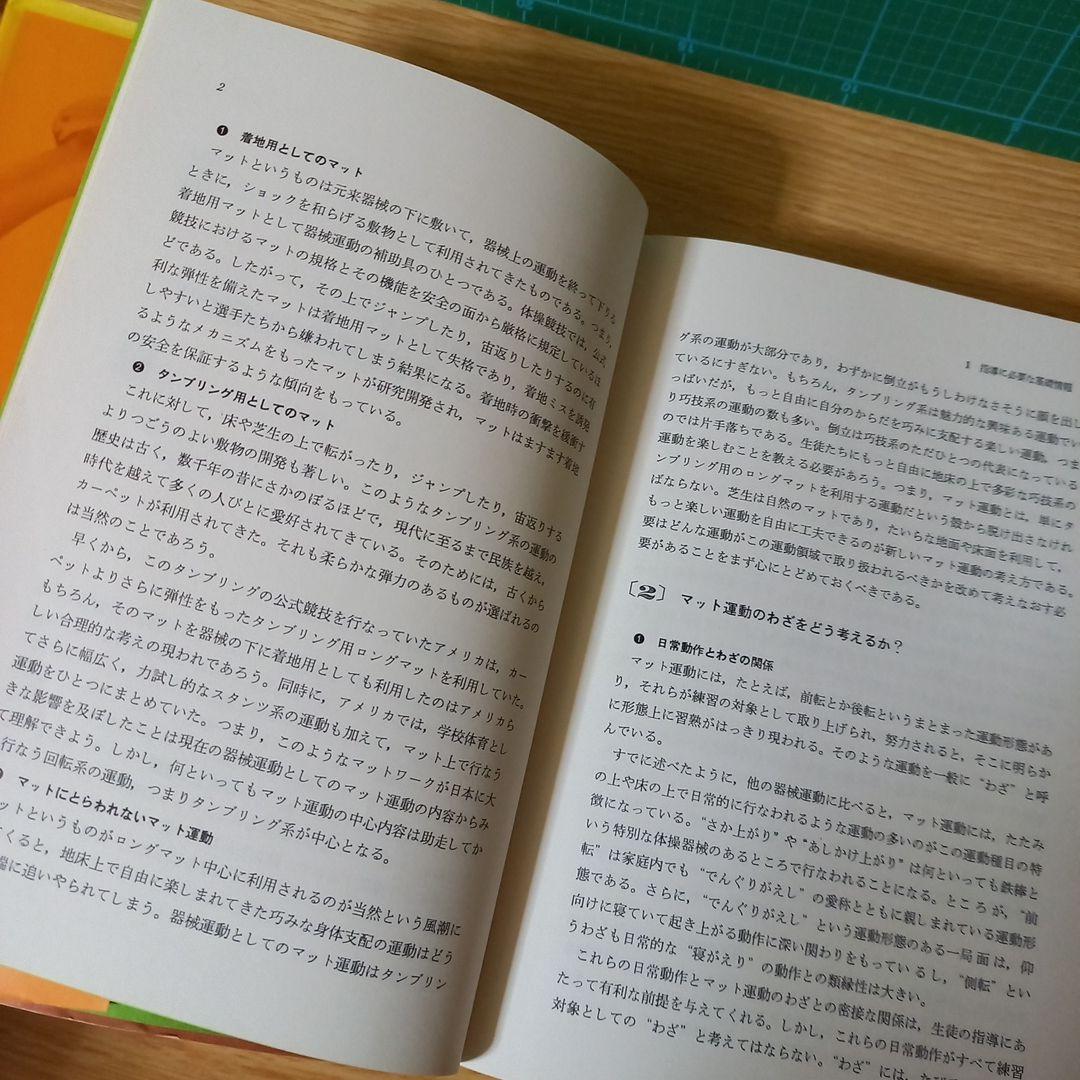 2
❶ 着地用としてのマット
マットというものは元来器械の下に敷いて，器械上の運動を終って下りる
ときに，ショックを和らげる敷物として利用されてきたものである。つまり，
着地用マットとして器械運動の補助具のひとつである。体操競技では，公式
競技におけるマットの規格とその機能を安全の面から厳格に規定しているほ
どである。したがって，その上でジャンプしたり，宙返りしたりするのに有
利な弾性を備えたマットは着地用マットとして失格であり，着地ミスを誘発
しやすいと選手たちから嫌われてしまう結果になる。着地時の衝撃を緩衝す
るようなメカニズムをもったマットが研究開発され，マットはますます着地
の安全を保証するような傾向をもっている。
❷ タンブリング用としてのマット
これに対して，床や芝生の上で転がったり，ジャンプしたり，宙返りする
よりつごうのよい敷物の開発も著しい。このようなタンブリング系の運動の
歴史は古く，数千年の昔にさかのぼるほどで，現代に至るまで民族を越え，
時代を越えて多くの人びとに愛好されてきている。そのためには，古くから
カーペットが利用されてきた。それも柔らかな弾力のあるものが選ばれるの
は当然のことであろう。
早くから，このタンブリングの公式競技を行なっていたアメリカは，カー
ペットよりさらに弾性をもったタンブリング用ロングマットを利用していた。
もちろん，そのマットを器械の下に着地用としても利用したのはアメリカら
しい合理的な考えの現われであろう。同時に，アメリカでは，学校体育とし
てさらに幅広く，力試し的なスタンツ系の運動も加えて，マット上で行なう
運動をひとつにまとめていた。つまり，このようなマットワークが日本に大
きな影響を及ぼしたことは現在の器械運動としてのマット運動の内容からみ
て理解できよう。しかし，何といってもマット運動の中心内容は助走してか
行なう回転系の運動，つまりタンブリング系が中心となる。
マットにとらわれないマット運動
ットというものがロングマット中心に利用されるのが当然という風潮に
くると，地床上で自由に楽しまれてきた巧みな身体支配の運動はどう
端に追いやられてしまう。器械運動としてのマット運動はタンブリン
1 指導に必要な基礎情報
グ系の運動が大部分であり，わずかに倒立がもうしわけなさそうに顔を出し
ているにすぎない。もちろん，タンブリング系は魅力的な興味ある運動でい
っぱいだが，もっと自由に自分のからだを巧みに支配する楽しい運動，つま
り巧技系の運動の数も多い。倒立は巧技系のただひとつの代表になっている
のでは片手落ちである。生徒たちにもっと自由に地床の上で多彩な巧技系の
運動を楽しむことを教える必要があろう。つまり，マット運動とは，単にタ
ンブリング用のロングマットを利用する運動だという殻から脱け出さなけれ
ばならない。芝生は自然のマットであり，たいらな地面や床面を利用して，
もっと楽しい運動を自由に工夫できるのが新しいマット運動の考え方である。
要はどんな運動がこの運動領域で取り扱われるべきかを改めて考えなおす必
要があることをまず心にとどめておくべきである。
〔2〕 マット運動のわざをどう考えるか？
❶ 日常動作とわざの関係
マット運動には，たとえば，前転とか後転というまとまった運動形態があ
り，それらが練習の対象として取り上げられ，努力されると，そこに明らか
に形態上に習熟がはっきり現われる。そのような運動を一般に“わざ”と呼
んでいる。
すでに述べたように，他の器械運動に比べると，マット運動には，たたみ
の上や床の上で日常的に行なわれるような運動の多いのがこの運動種目の特
徴になっている。“さか上がり”や“あしかけ上がり”は何といっても鉄棒と
いう特別な体操器械のあるところで行なわれることになる。ところが，“前
転”は家庭内でも“でんぐりがえし”の愛称とともに親しまれている運動形
態である。さらに，“でんぐりがえし”という運動形態のある一局面は，仰
向けに寝ていて起き上がる動作に深い関わりをもっているし，“側転”とい
うわざも日常的な“寝がえり”の動作との類縁性は大きい。
これらの日常動作とマット運動のわざとの密接な関係は，生徒の指導にあ
たって有利な前提を与えてくれる。しかし，これらの日常動作がすべて練習
対象としての“わざ”と考えてはならない。“わざ”には，